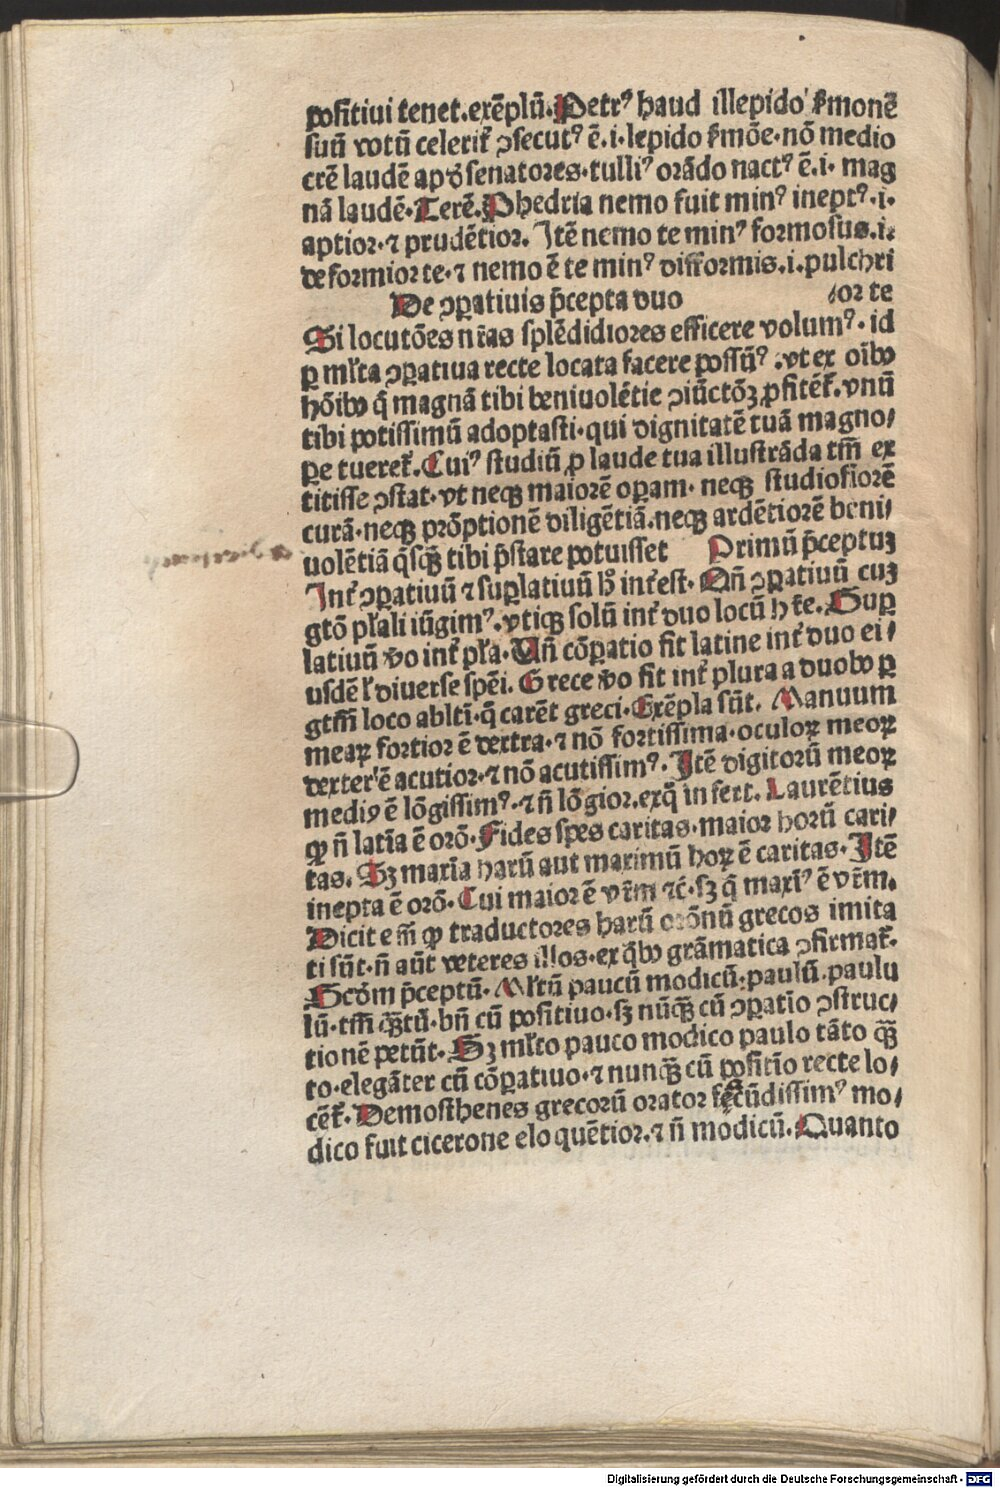 positiui tenet.exēplū.Petrꝰ haud illepido ẜmonē
suū votū celeriť ↄsecutꝰ ē.i.lepido ẜmōe.nō medio
crē laudē apđ senatores.tulliꝰ orādo nactꝰ ē.i. mag
nā laudē.Terē.Phedria nemo fuit minꝰ ineptꝰ.i.
aptior.⁊ prudētior. Itē nemo te minꝰ formosus.i.
deformior te.⁊ nemo ē te minꝰ difformis.i.pulchri
De ↄꝑatiuis p̄cepta duo /or te
Si locutōes nr̄as splēdidiores efficere volumꝰ.id
ꝑ ml̓ta ↄꝑatiua recte locata facere possūꝰ.vt ex oībꝰ
hōibꝰ q̄ magnā tibi beniuolētie ↄiūctōꝫ ꝓfitēť.vnū
tibi potissimū adoptasti.qui dignitatē tuā magno/
ꝑe tuereť.Cuiꝰ studiū ꝓ laude tua illustrāda tm̄ ex
titisse ↄstat.vt neqꝫ maiorē oꝑam.neqꝫ studiosiorē
curā.neqꝫ prōptionē diligētiā.neqꝫ ardētiorē beni/
uolētiā q̄sqꝫ̄ tibi p̄stare potuisset Primū p̄ceptuꝫ
Inť ↄꝑatiuū ⁊ suꝑlatiuū ħ inťest.Qn̄ ↄꝑatiuū cuꝫ
gtō pl̓ali iūgimꝰ.vtiqꝫ solū inť duo locū hťe.Suꝑ
latiuū v̄o inť pl̓a.Vn̄ cōꝑatio fit latine inť duo ei/
usdē ł diuerse spēi. Grece v̄o fit inť plura a duobꝰ ꝑ
gtm̄ loco ablti.q̄ carēt greci.Exēpla sūt. Manuum
meaꝝ fortior ē dextra.⁊ nō fortissima.oculoꝝ meoꝝ
dexter ē acutior.⁊ nō acutissimꝰ.Itē digitorū meoꝝ
mediꝰ ē lōgissimꝰ.⁊ n̄ lōgior.exq̄ infert. Laurētius
ꝙ n̄ latīa ē orō.Fides spes caritas.maior horū cari/
tas. Sꝫ maxīa harū aut maximū hoꝝ ē caritas.Itē
inepta ē orō.Cui maior ē vr̄m ⁊c̄.sꝫ q̄ maxīꝰ ē vr̄m.
Dicit em̄ ꝙ traductores harū orōnū grecos imita
ti sūt.n̄ aūt veteres illos.ex q̄bꝰ grāmatica ↄfirmať.
Scōm p̄ceptū.Ml̓tū paucū modicū.paulū.paulu
lū.tm̄ qꝫ̄tū.bn̄ cū positiuo.sꝫ nūqꝫ̄ cū ↄꝑatīo ↄstruc/
tionē petūt.Sꝫ ml̓to pauco modico paulo tāto qꝫ̄
to.elegāter cū cōꝑatiuo.⁊ nunqꝫ̄ cū positīo recte lo/
cēť.Demosthenes grecorū orator fecūdissimꝰ mo/
dico fuit cicerone eloquētior.⁊ n̄ modicū.Quanto
Digitalisierung gefördert durch die Deutsche Forschungsgemeinschaft - DFG